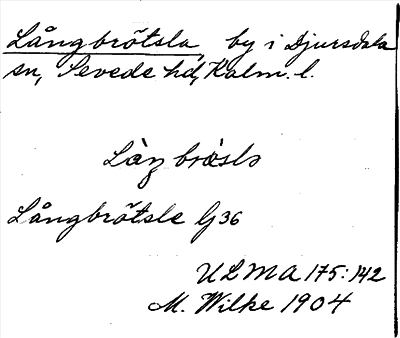 Långbrötsla, by i Djursdala
sn, Sevede hd, Kalm. l.
Långbrötsle G 36
ULMA 175:142
M. Wilke 1904